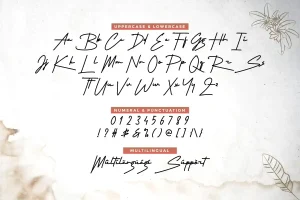 UPPERCASE & LOWERCASE
Aa Bb Cc Dd Ee Ff Gg Hh Ii
Jj Kk Ll Mm Nn Oo Pp Qq Rr Ss
Tt Uu Vv Ww Xx Yy Zz
NUMERAL & PUNCTUATION
0 1 2 3 4 5 6 7 8 9
! ? # & % ( ) @ [ ] \
MULTILINGUAL
Multilanguage Support